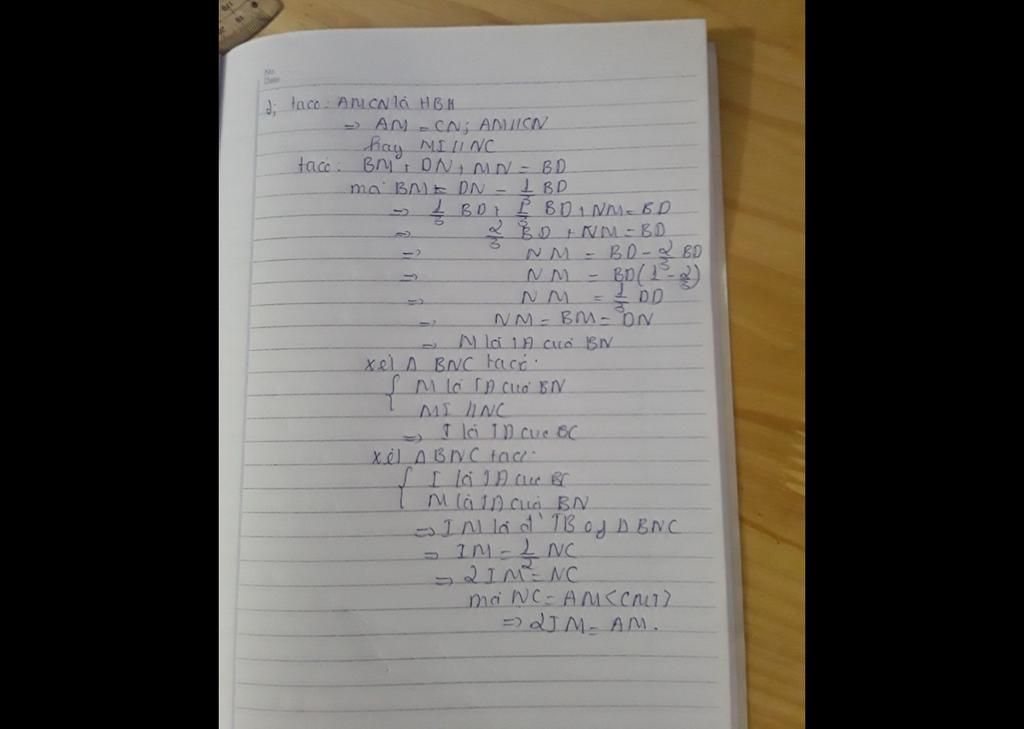 No.
Date
2; ta có: AMCN là HBH
=> AM = CN; AM // CN
hay MI // NC
ta có: BM + DN + MN = BD
mà BM = DN = 1/3 BD
=> 1/3 BD + 1/3 BD + NM = BD
=> 2/3 BD + NM = BD
=> NM = BD - 2/3 BD
=> NM = BD(1 - 2/3)
=> NM = 1/3 BD
=> NM = BM = DN
=> M là TĐ của BN
xét Δ BNC ta có:
{ M là TĐ của BN
MI // NC
=> I là TĐ của BC
xét Δ BNC ta có:
{ I là TĐ của BC
M là TĐ của BN
=> IM là đ' TB of Δ BNC
=> IM = 1/2 NC
=> 2IM = NC
mà NC = AM <CMT>
=> 2IM = AM.